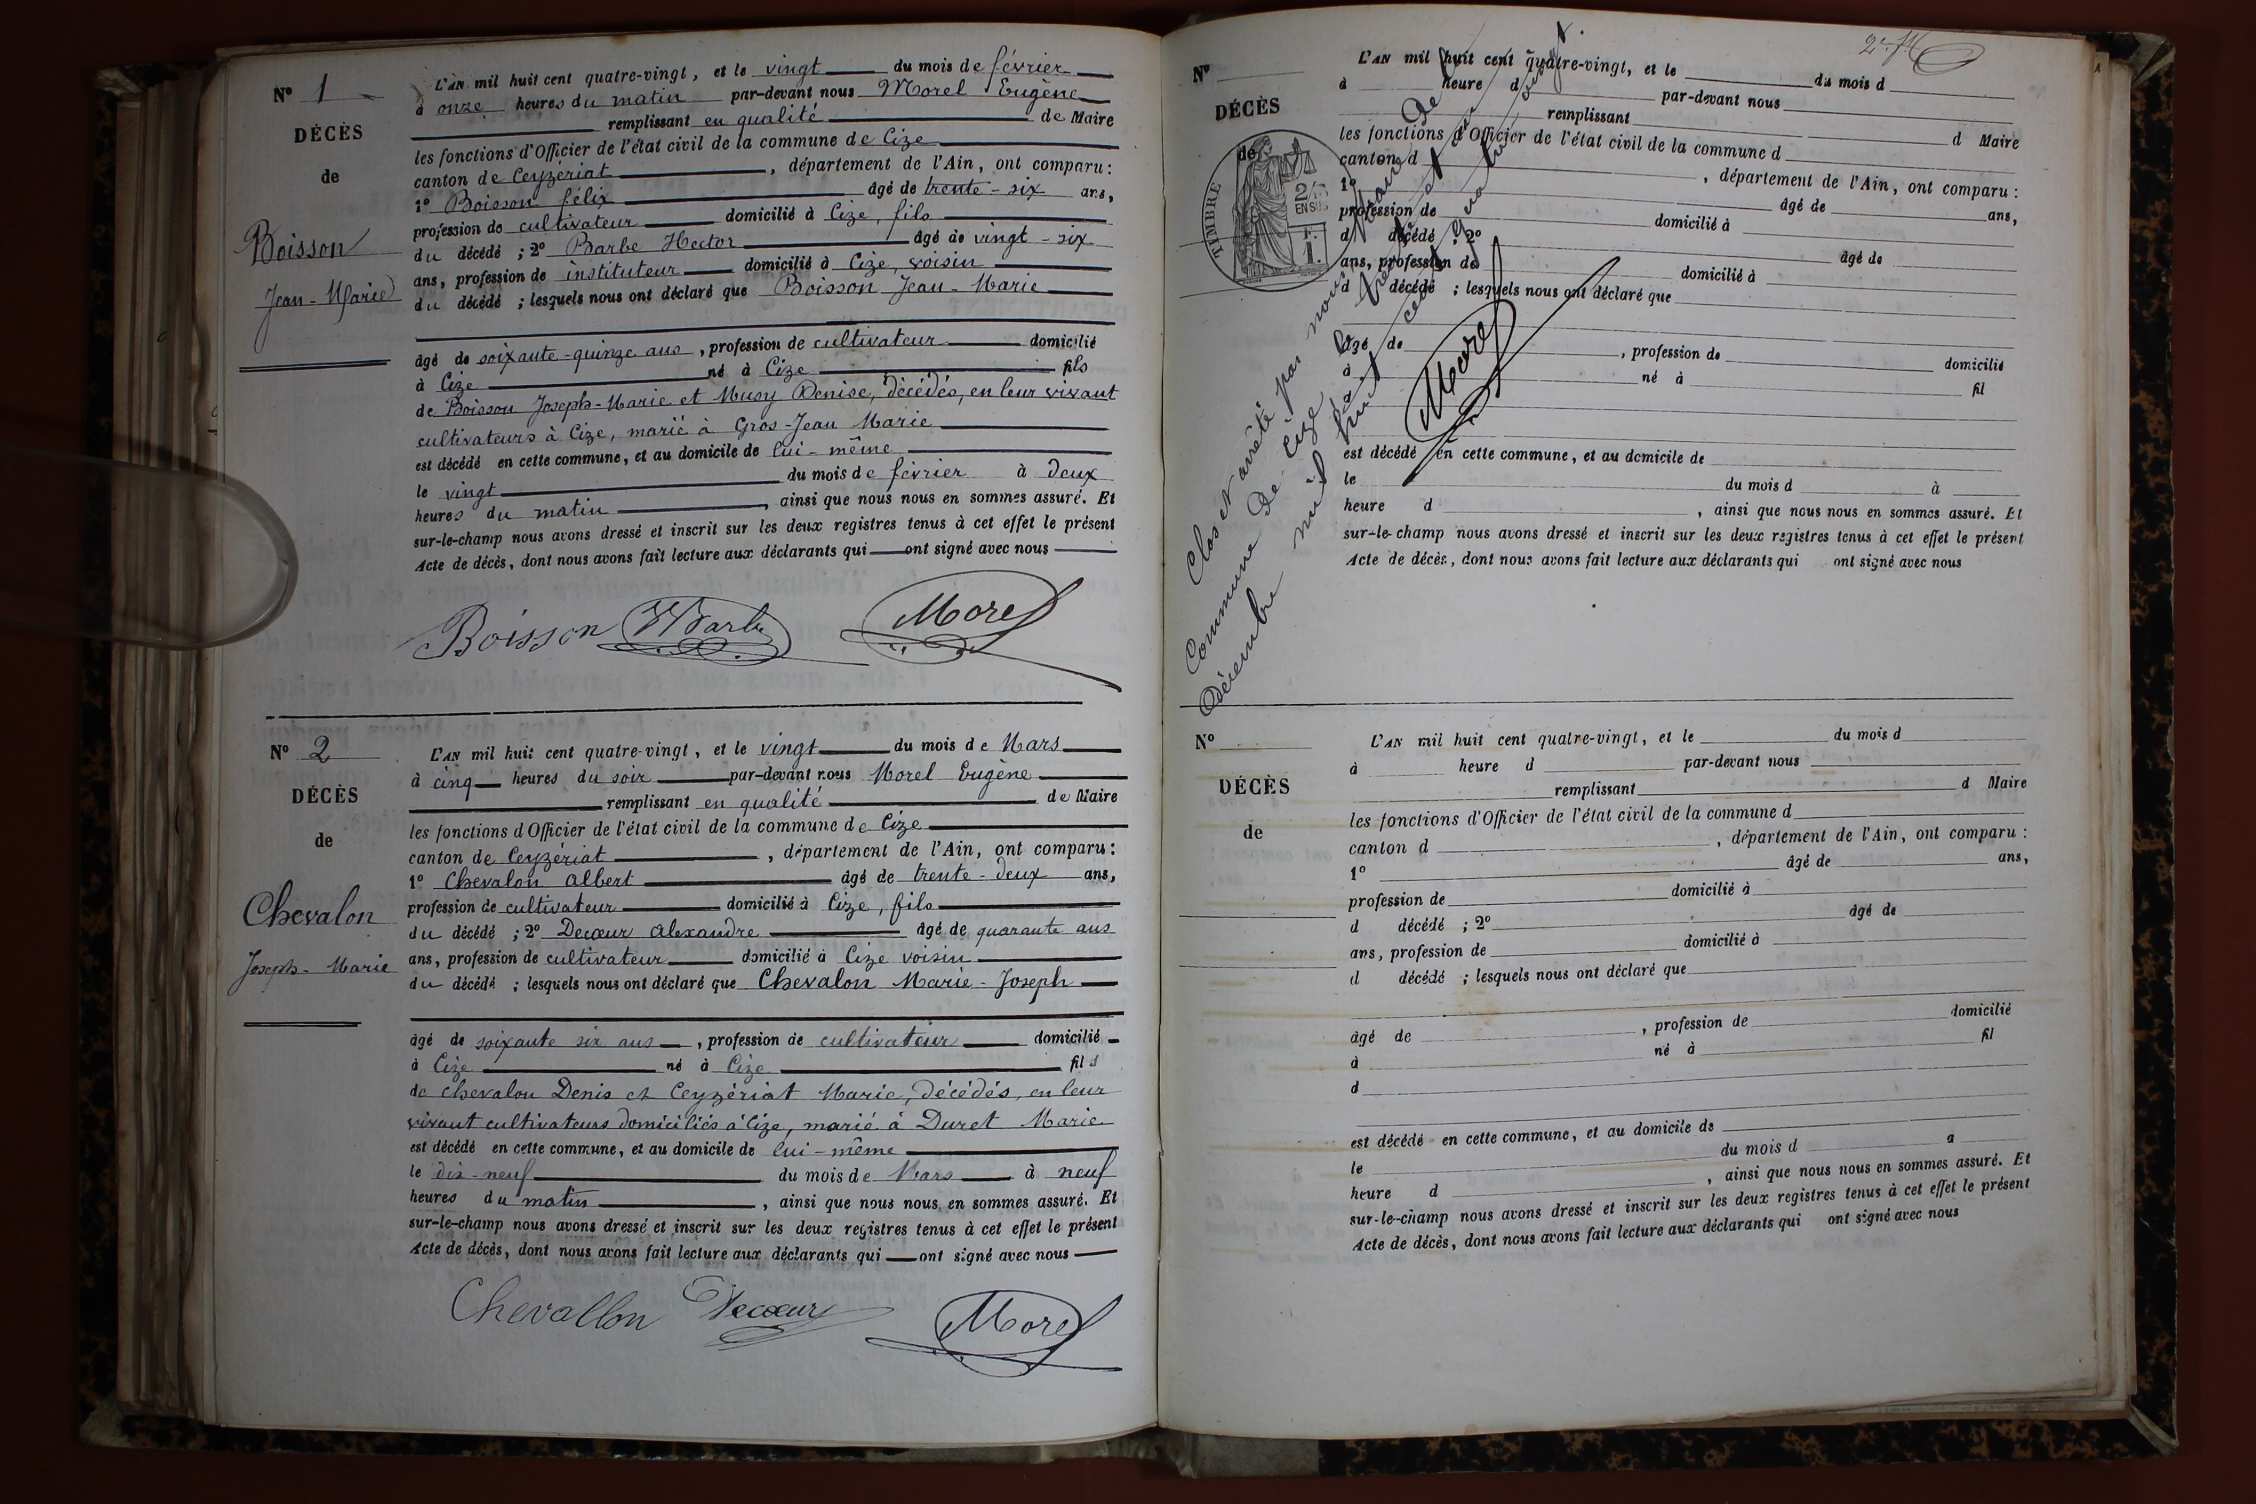 N° 1
DÉCÈS
de
Boisson
Jean-Marie
L'AN mil huit cent quatre-vingt, et le vingt du mois de février
à onze heures du matin par-devant nous Morel Eugène
remplissant en qualité de Maire
les fonctions d'Officier de l'état civil de la commune de Cize
canton de Ceyzeriat, département de l'Ain, ont comparu:
1° Boisson félix âgé de trente-six ans,
profession de cultivateur domicilié à Cize, fils
du décédé ; 2° Barbe Hector âgé de vingt-six
ans, profession de instituteur domicilié à Cize, voisin
du décédé ; lesquels nous ont déclaré que Boisson Jean-Marie
âgé de soixante-quinze ans, profession de cultivateur domicilié
à Cize né à Cize fils
de Boisson Joseph-Marie et Musy Denise, décédés, en leur vivant
cultivateurs à Cize, marié à Gros-Jean Marie
est décédé en cette commune, et au domicile de lui-même
le vingt du mois de février à deux
heures du matin, ainsi que nous nous en sommes assuré. Et
sur-le-champ nous avons dressé et inscrit sur les deux registres tenus à cet effet le présent
Acte de décès, dont nous avons fait lecture aux déclarants qui ont signé avec nous
Boisson HBarbe Morel
N° 2
DÉCÈS
de
Chevalon
Joseph-Marie
L'AN mil huit cent quatre-vingt, et le vingt du mois de Mars
à cinq heures du soir par-devant nous Morel Eugène
remplissant en qualité de Maire
les fonctions d'Officier de l'état civil de la commune de Cize
canton de Ceyzériat, département de l'Ain, ont comparu:
1° Chevalon Albert âgé de trente-deux ans,
profession de cultivateur domicilié à Cize, fils
du décédé ; 2° Decœur Alexandre âgé de quarante ans
ans, profession de cultivateur domicilié à Cize voisin
du décédé ; lesquels nous ont déclaré que Chevalon Marie-Joseph
âgé de soixante six ans, profession de cultivateur domicilié
à Cize né à Cize fils
de Chevalon Denis et Ceyzériat Marie, décédés, en leur
vivant cultivateurs domiciliés à Cize, marié à Duret Marie
est décédé en cette commune, et au domicile de lui-même
le dix-neuf du mois de Mars à neuf
heures du matin, ainsi que nous nous en sommes assuré. Et
sur-le-champ nous avons dressé et inscrit sur les deux registres tenus à cet effet le présent
Acte de décès, dont nous avons fait lecture aux déclarants qui ont signé avec nous
Chevallon Decœur Morel
N°
DÉCÈS
de
TIMBRE
2/10
EN SUS
1 F.
L'AN mil huit cent quatre-vingt, et le du mois d
à heure d par-devant nous
remplissant d Maire
les fonctions d'Officier de l'état civil de la commune d
canton d, département de l'Ain, ont comparu :
1° âgé de ans,
profession de domicilié à
d décédé ; 2° âgé de
ans, profession de domicilié à
d décédé ; lesquels nous ont déclaré que
âgé de, profession de domicilié
à né à fil
d
est décédé en cette commune, et au domicile de
le du mois d à
heure d, ainsi que nous nous en sommes assuré. Et
sur-le-champ nous avons dressé et inscrit sur les deux registres tenus à cet effet le présent
Acte de décès, dont nous avons fait lecture aux déclarants qui ont signé avec nous
Clos et arrêté par nous, Maire de la
Commune de Cize le trente et un
Décembre mil huit cent quatre vingt.
Morel
N°
DÉCÈS
de
L'AN mil huit cent quatre-vingt, et le du mois d
à heure d par-devant nous
remplissant d Maire
les fonctions d'Officier de l'état civil de la commune d
canton d, département de l'Ain, ont comparu :
1° âgé de ans,
profession de domicilié à
d décédé ; 2° âgé de
ans, profession de domicilié à
d décédé ; lesquels nous ont déclaré que
âgé de, profession de domicilié
à né à fil
d
est décédé en cette commune, et au domicile de
le du mois d à
heure d, ainsi que nous nous en sommes assuré. Et
sur-le-champ nous avons dressé et inscrit sur les deux registres tenus à cet effet le présent
Acte de décès, dont nous avons fait lecture aux déclarants qui ont signé avec nous